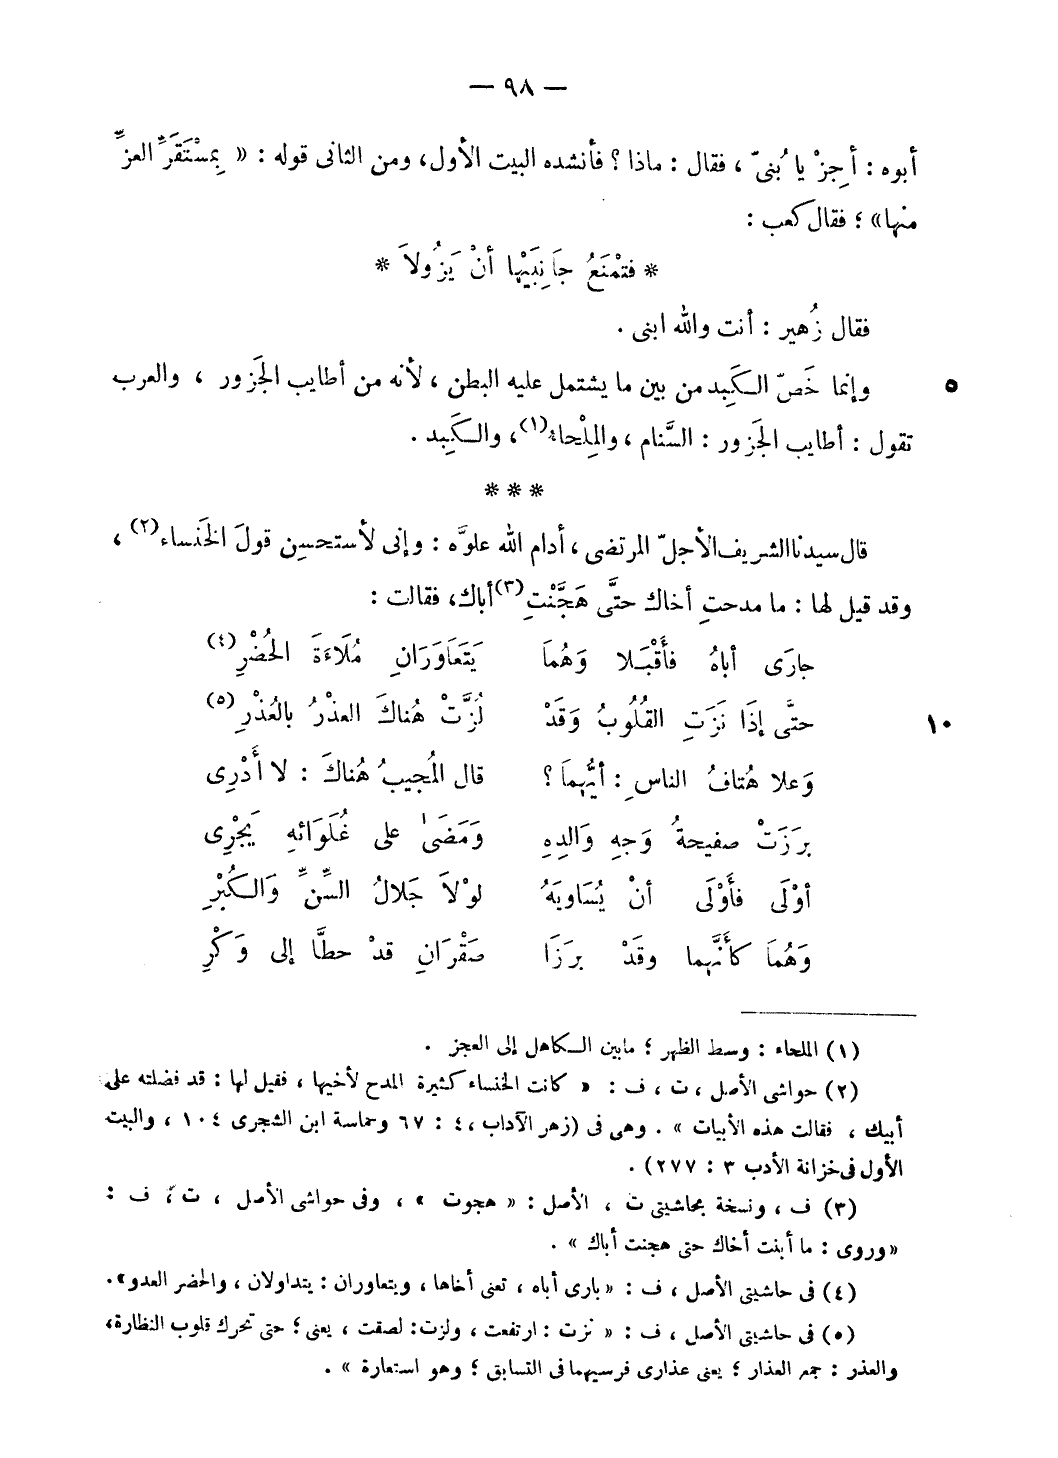 — ٩٨ —
أبوه : أَجِزْ يا بُنىّ ، فقال : ماذا ؟ فأنشده البيت الأول، ومن الثانى قوله : « بِمسْتَقَرِّ العزِّ
منها» ؛ فقال كعب :
* فتمْنَعُ جَانِبَيْها أنْ يَزُولاَ *
فقال زُهير : أنت والله ابنى .
٥ وإنما خَصّ الكَبِد من بين ما يشتمل عليه البطن ، لأنه من أطايب الجَزور ، والعرب
تقول : أطايب الجَزور : السَّنام ، والمِلْحاء(١)، والكَبِد .
* * *
قال سيدنا الشريف الأجلّ المرتضى ، أدام الله علوَّه : وإنى لأستحسِن قولَ الخَنساء(٢) ،
وقد قيل لها : ما مدحتِ أخاك حتَّى هَجَّنْتِ(٣) أباك، فقالت :
جارَى أباهُ فأَقْبَلا وَهُمَا يَتَعاوَرَانِ مُلَاءَةَ الحُضْرِ(٤)
١٠ حتَّى إذَا نَزَتِ القُلُوبُ وَقَدْ لُزَّتْ هُناكَ العذْرُ بالعُذْرِ(٥)
وَعلا هُتافُ الناسِ : أيُّهمَا ؟ قال المُجيبُ هُناكَ : لا أَدْرِى
برَزَتْ صفيحةُ وَجهِ وَالدِهِ وَمَضَىٰ على غُلَوَائهِ يَجْرِى
أوْلَى فأَوْلَى أنْ يُسَاوِيَهُ لوْلاَ جَلالُ السِّنِّ وَالكُبْرِ
وَهُمَا كأَنَّهما وقَدْ برَزَا صَقْرَانِ قدْ حطَّا إلى وَكْرِ
(١) الملحاء : وسط الظهر ؛ مابين الكاهل إلى العجز .
(٢) حواشى الأصل ، ت ، ف : « كانت الخنساء كثيرة المدح لأخيها ، فقيل لها : قد فضلته على
أبيك ، فقالت هذه الأبيات » . وهى فى (زهر الآداب ، ٤ : ٦٧ وحماسة ابن الشجرى ١٠٤ ، والبيت
الأول فى خزانة الأدب ٣ : ٢٧٧) .
(٣) ف ، ونسخة بحاشيتى ت ، الأصل : « هجوت » ، وفى حواشى الأصل ، ت ، ف :
«وروى : ما أبنت أخاك حتى هجنت أباك » .
(٤) فى حاشيتى الأصل ، ف : « بارى أباه ، تعنى أخاها ، ويتعاوران : يتداولان ، والحضر العدو».
(٥) فى حاشيتى الأصل ، ف : « نزت : ارتفعت ، ولزت : لصقت ، يعنى ؛ حتى تحرك قلوب النظارة،
والعذر : جمع العذار ؛ يعنى عذارى فرسيهما فى التسابق ؛ وهو استعارة » .